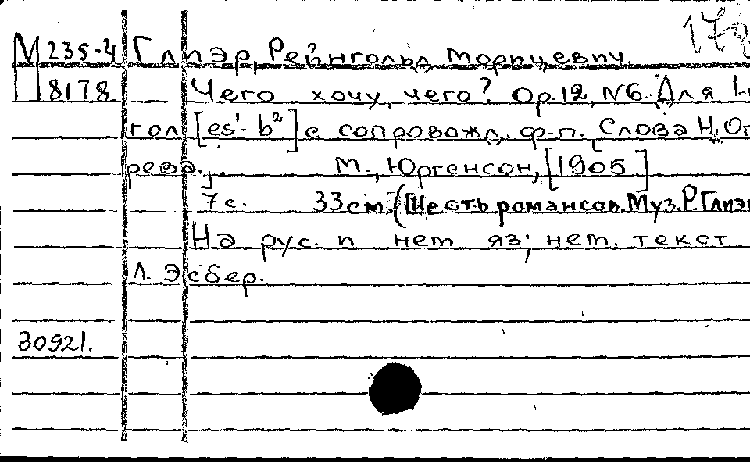 М 235-4 Глиэр, Рейнгольд Морицевич
8178 Чего хочу, чего? Ор.12, N6. Для
гол [es'- b²] с сопровожд. ф-п. [Слова Н. Ог
рева.] М., Юргенсон, [1905]
7 с. 33 см. (Шесть романсов. Муз. Р. Глиэ
На рус. и нем яз; нем. текст
Л. Эсбер.
30921.